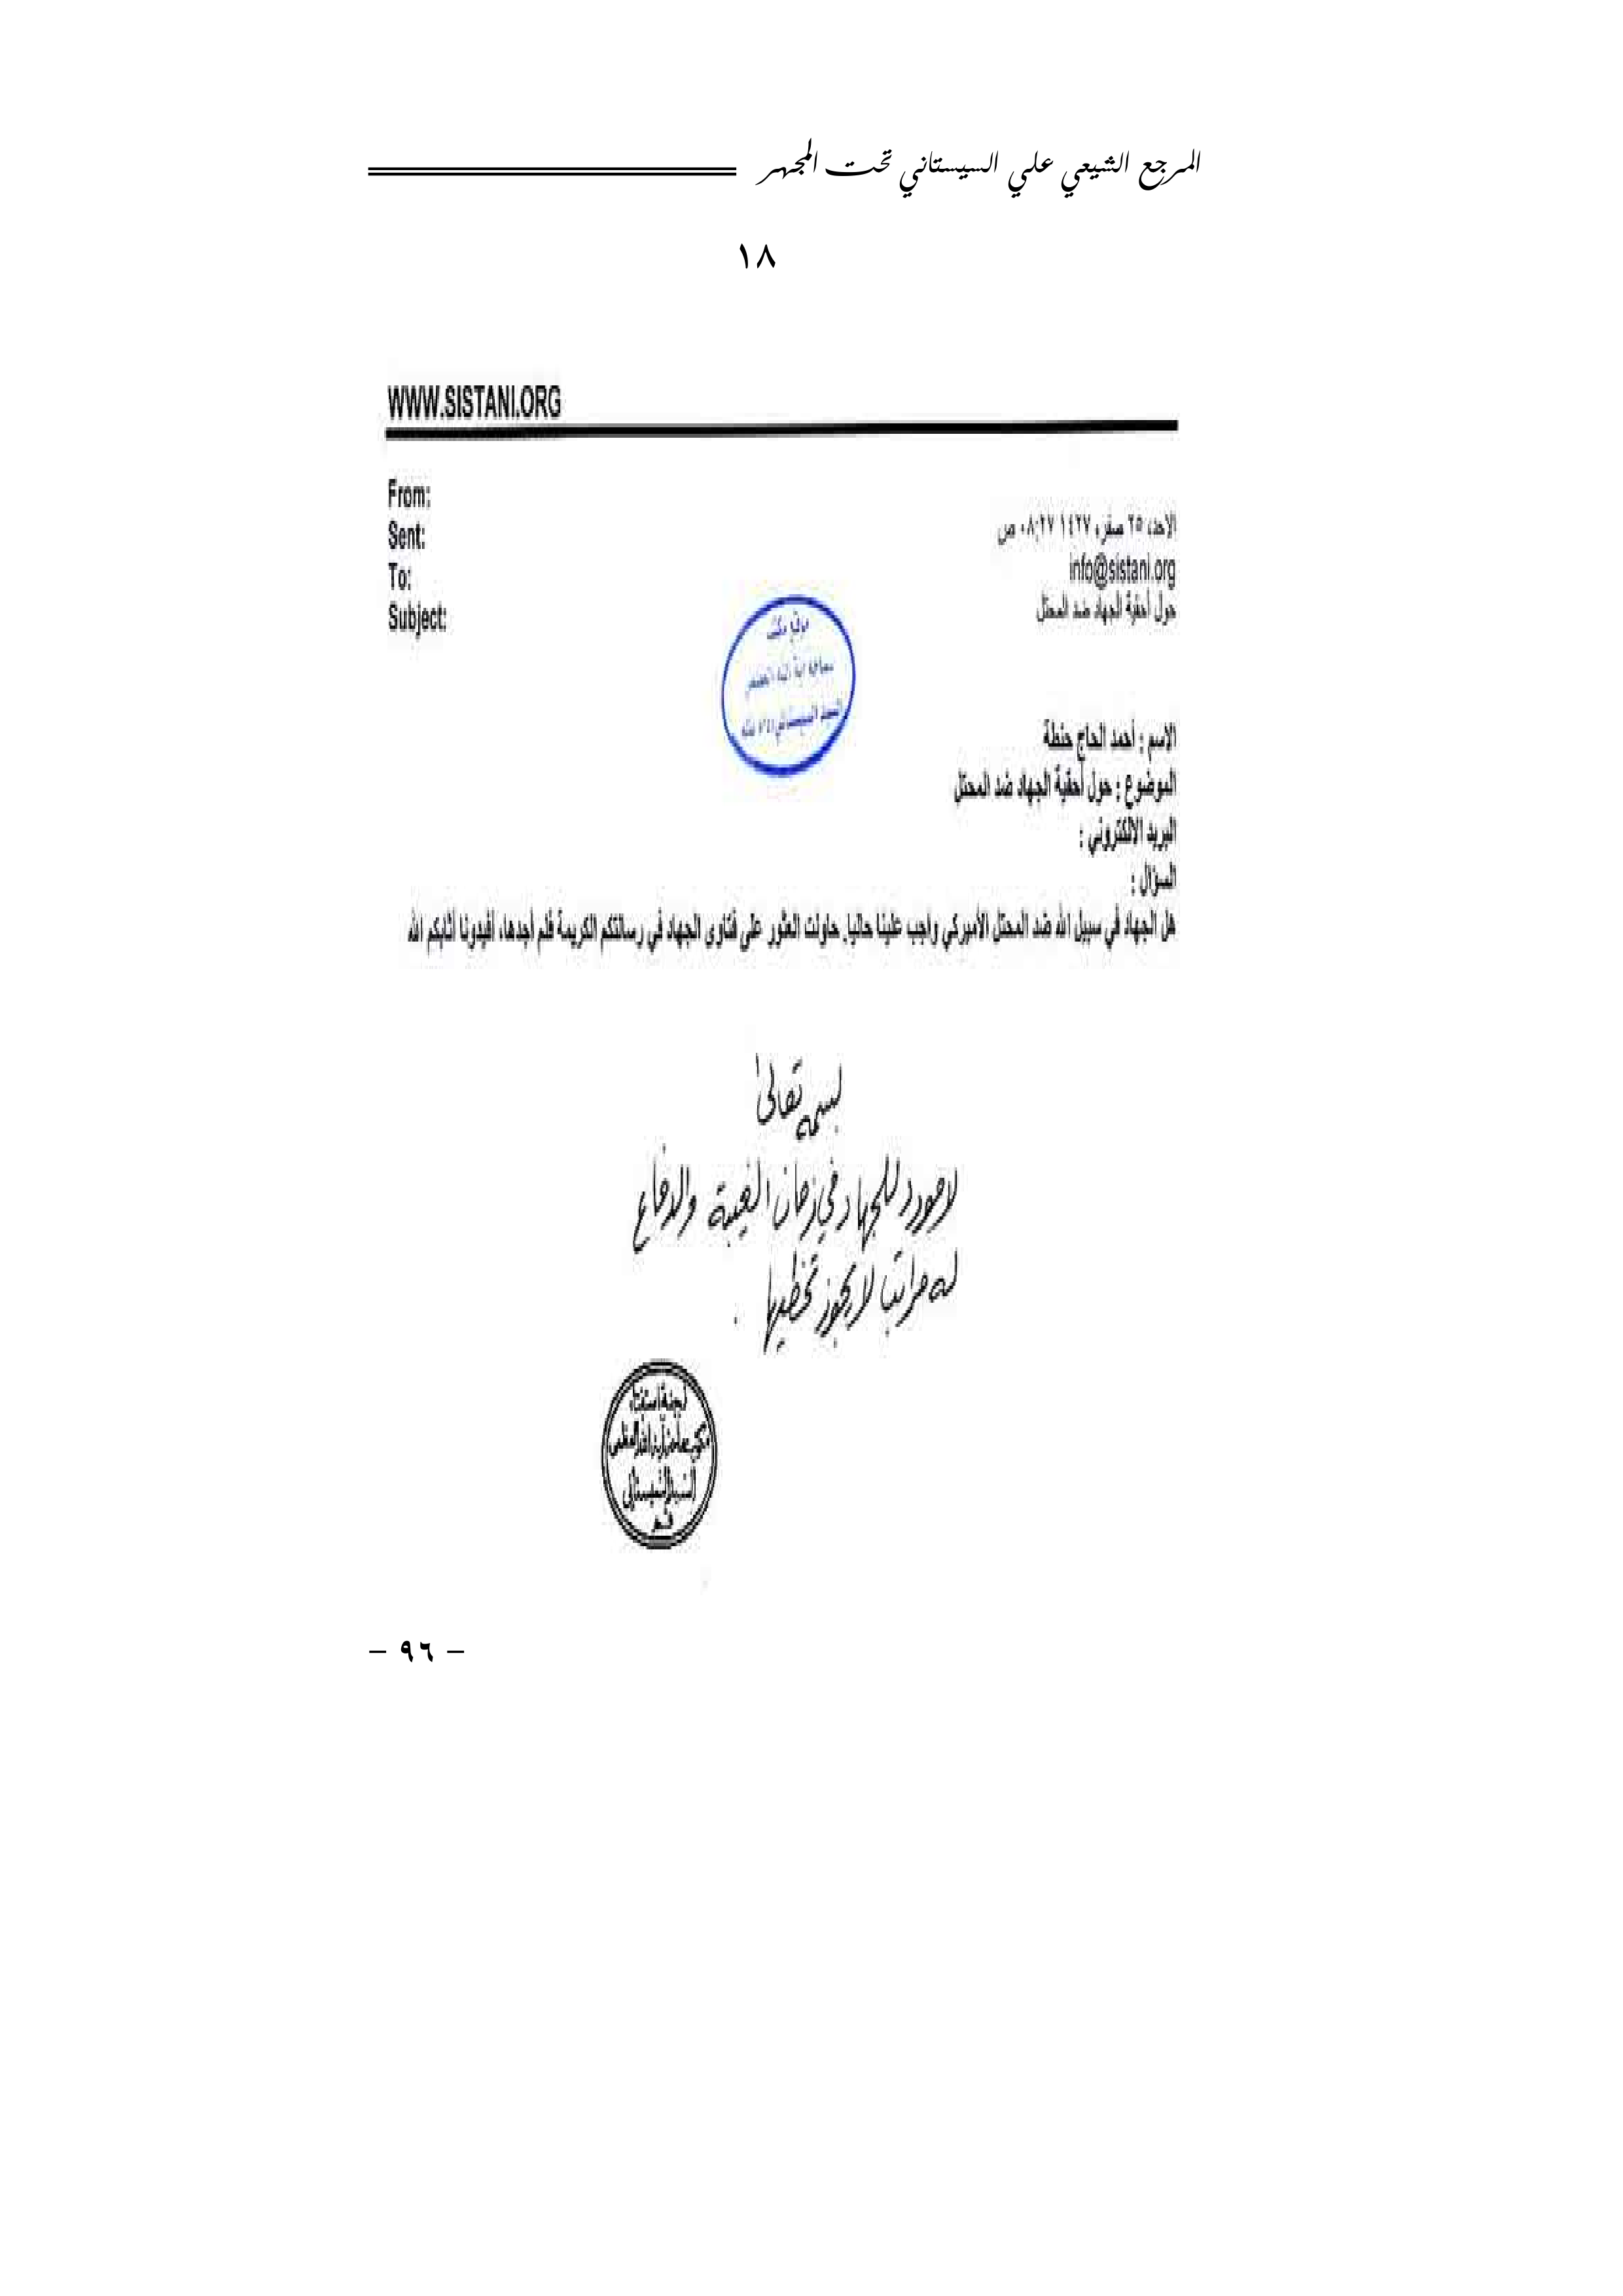 المرجع الشيعي علي السيستاني تحت المجهر
١٨
WWW.SISTANI.ORG
From:
Sent: الاحد، ٢٥ صفر، ١٤٢٧ ٠٨:٢٧ ص
To: info@sistani.org
Subject: حول أحقية الجهاد ضد المحتل
موقع مكتب
سماحة آية الله العظمى
السيد السيستاني
الاسم : أحمد الحاج حنطة
الموضوع : حول أحقية الجهاد ضد المحتل
البريد الالكتروني :
السؤال :
هل الجهاد في سبيل الله ضد المحتل الأميركي واجب علينا حاليا. حاولت العثور على فتاوى الجهاد في رسالتكم الكريمة فلم أجدها، أفيدونا أثابكم الله
بسمه تعالى
لا مورد للجهاد في زمان الغيبة والدفاع
له مراتب لا يجوز تخطيها .
لجنة استفتاء
مكتب سماحة آية الله العظمى
السيد السيستاني
قم
- ٩٦ -